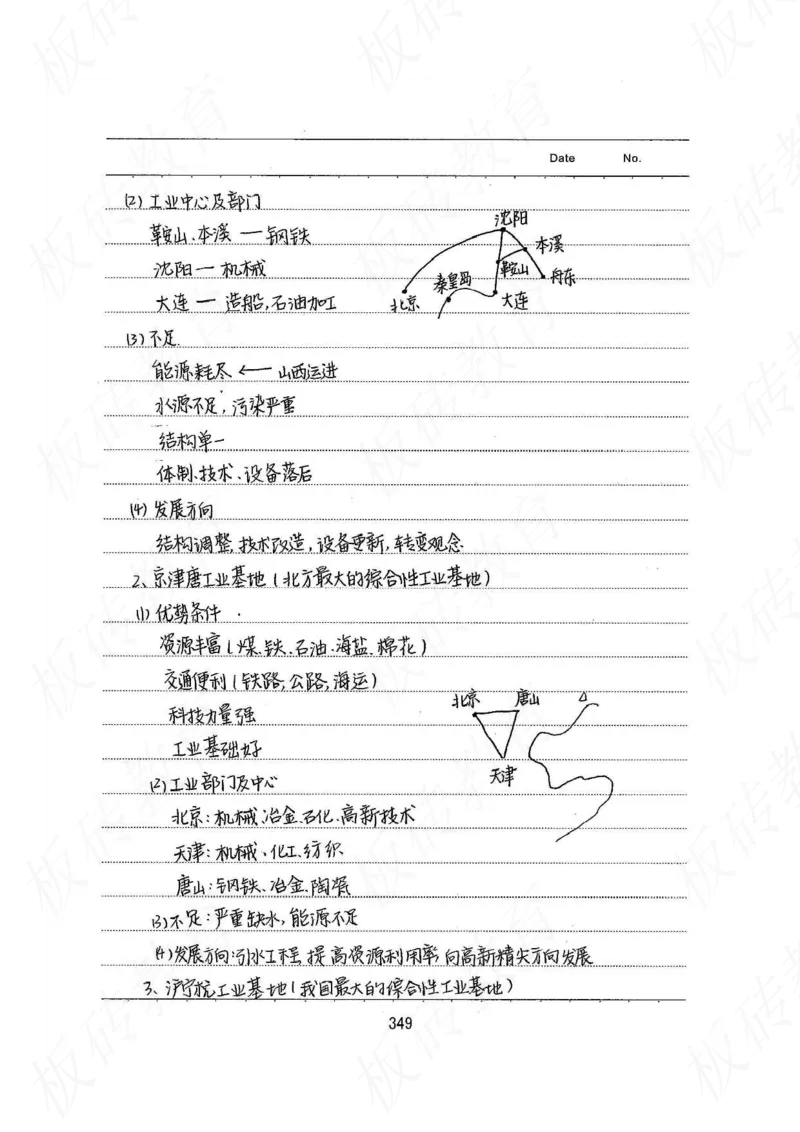 Date No.
(2) 工业中心及部门
鞍山、本溪 — 钢铁
沈阳 — 机械
大连 — 造船,石油加工
沈阳
本溪
鞍山
丹东
秦皇岛
北京
大连
(3) 不足
能源耗尽 ← 山西运进
水源不足,污染严重
结构单一
体制、技术、设备落后
(4) 发展方向
结构调整,技术改造,设备更新,转变观念
2、京津唐工业基地(北方最大的综合性工业基地)
(1) 优势条件
资源丰富(煤、铁、石油、海盐、棉花)
交通便利(铁路,公路,海运)
科技力量强
工业基础好
北京
唐山
天津
(2) 工业部门及中心
北京:机械、冶金、石化、高新技术
天津:机械、化工、纺织
唐山:钢铁、冶金、陶瓷
(3) 不足:严重缺水,能源不足
(4) 发展方向:引水工程,提高资源利用率,向高新精尖方向发展
3、沪宁杭工业基地(我国最大的综合性工业基地)
349
板砖教育